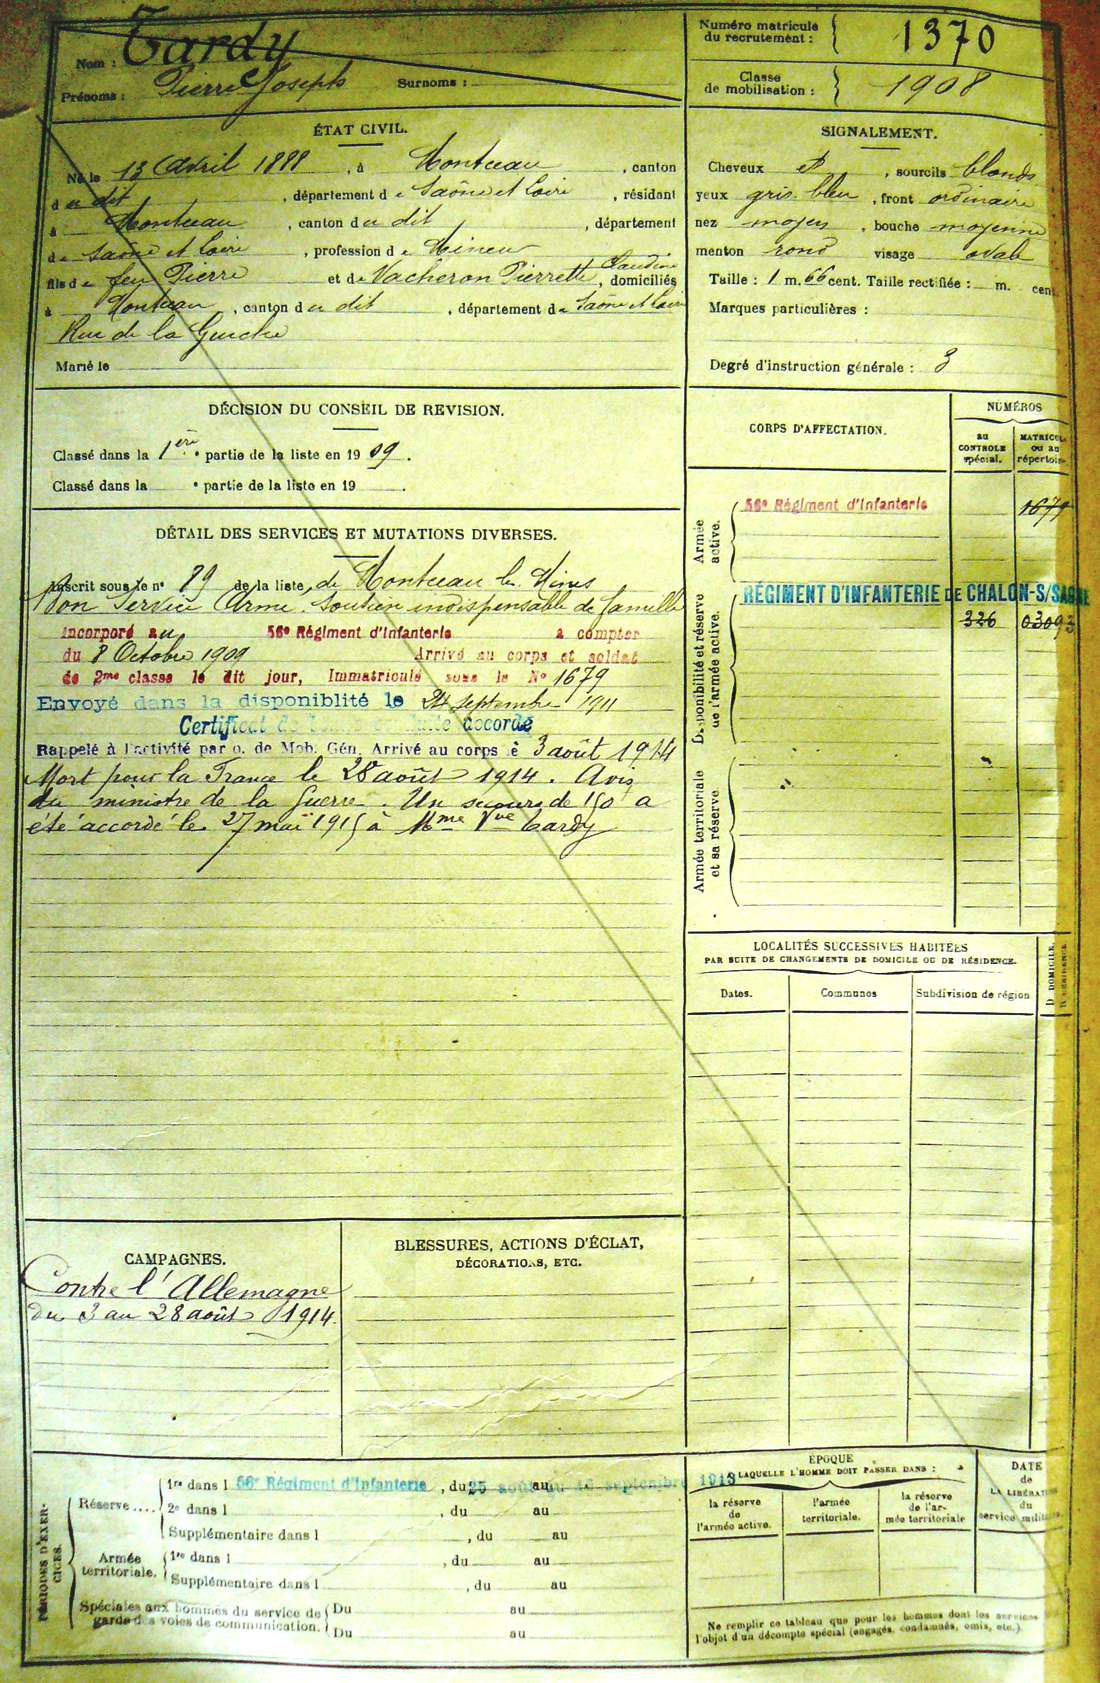 Nom : Tardy
Prénoms : Pierre Joseph Surnoms :
Numéro matricule du recrutement : 1370
Classe de mobilisation : 1908
ÉTAT CIVIL.
Né le 13 Avril 1888, à Montceau, canton
du dit, département de Saône et Loire, résidant
à Montceau, canton du dit, département
de Saône et Loire, profession de Mineur
fils de feu Pierre et de Vacheron Pierrette Claudine, domiciliés
à Montceau, canton du dit, département de Saône et Loire
Rue de la Guiche
Marié le
SIGNALEMENT.
Cheveux et, sourcils blonds
yeux gris bleu, front ordinaire
nez moyen, bouche moyenne
menton rond visage ovale
Taille : 1 m. 66 cent. Taille rectifiée : m. cent.
Marques particulières :
Degré d'instruction générale : 3
DÉCISION DU CONSEIL DE REVISION.
Classé dans la 1ère partie de la liste en 1909.
Classé dans la e partie de la liste en 19 .
DÉTAIL DES SERVICES ET MUTATIONS DIVERSES.
Inscrit sous le n° 89 de la liste de Montceau les Mines
Bon Service Armé. Soutien indispensable de famille
Incorporé au 56e Régiment d'Infanterie à compter
du 8 Octobre 1909 Arrivé au corps et soldat
de 2me classe le dit jour, Immatriculé sous le No 1679
Envoyé dans la disponiblité le 24 septembre 1911
Certificat de bonne conduite accordé
Rappelé à l'activité par o. de Mob. Gén. Arrivé au corps le 3 août 1914
Mort pour la France le 28 août 1914. Avis
du ministre de la Guerre. Un secours de 150 a
été accordé le 27 mai 1915 à Mme Vve Tardy
CORPS D'AFFECTATION.
NUMÉROS
au CONTROLE spécial.
MATRICULE ou au répertoire
Armée active.
56e Régiment d'Infanterie 1679
Disponibilité et réserve de l'armée active.
RÉGIMENT D'INFANTERIE DE CHALON-S/SAONE
326 03093
Armée territoriale et sa réserve.
LOCALITÉS SUCCESSIVES HABITÉES
PAR SUITE DE CHANGEMENTS DE DOMICILE OU DE RÉSIDENCE.
Dates. Communes Subdivision de région
D. DOMICILE.
R. RÉSIDENCE.
CAMPAGNES.
Contre l'Allemagne
du 3 au 28 août 1914.
BLESSURES, ACTIONS D'ÉCLAT,
DÉCORATIONS, ETC.
PÉRIODES D'EXERCICES.
Réserve....
1re dans l 56e Régiment d'Infanterie, du 25 août au septembre 1913
2e dans l , du au
Supplémentaire dans l , du au
Armée territoriale.
1re dans l , du au
Supplémentaire dans l , du au
Spéciales aux hommes du service de garde des voies de communication.
Du au
Du au
ÉPOQUE
A LAQUELLE L'HOMME DOIT PASSER DANS :
la réserve de l'armée active.
l'armée territoriale.
la réserve de l'armée territoriale
DATE de LA LIBÉRATION du service militaire.
Ne remplir ce tableau que pour les hommes dont les services
l'objet d'un décompte spécial (engagés, condamnés, omis, etc.).